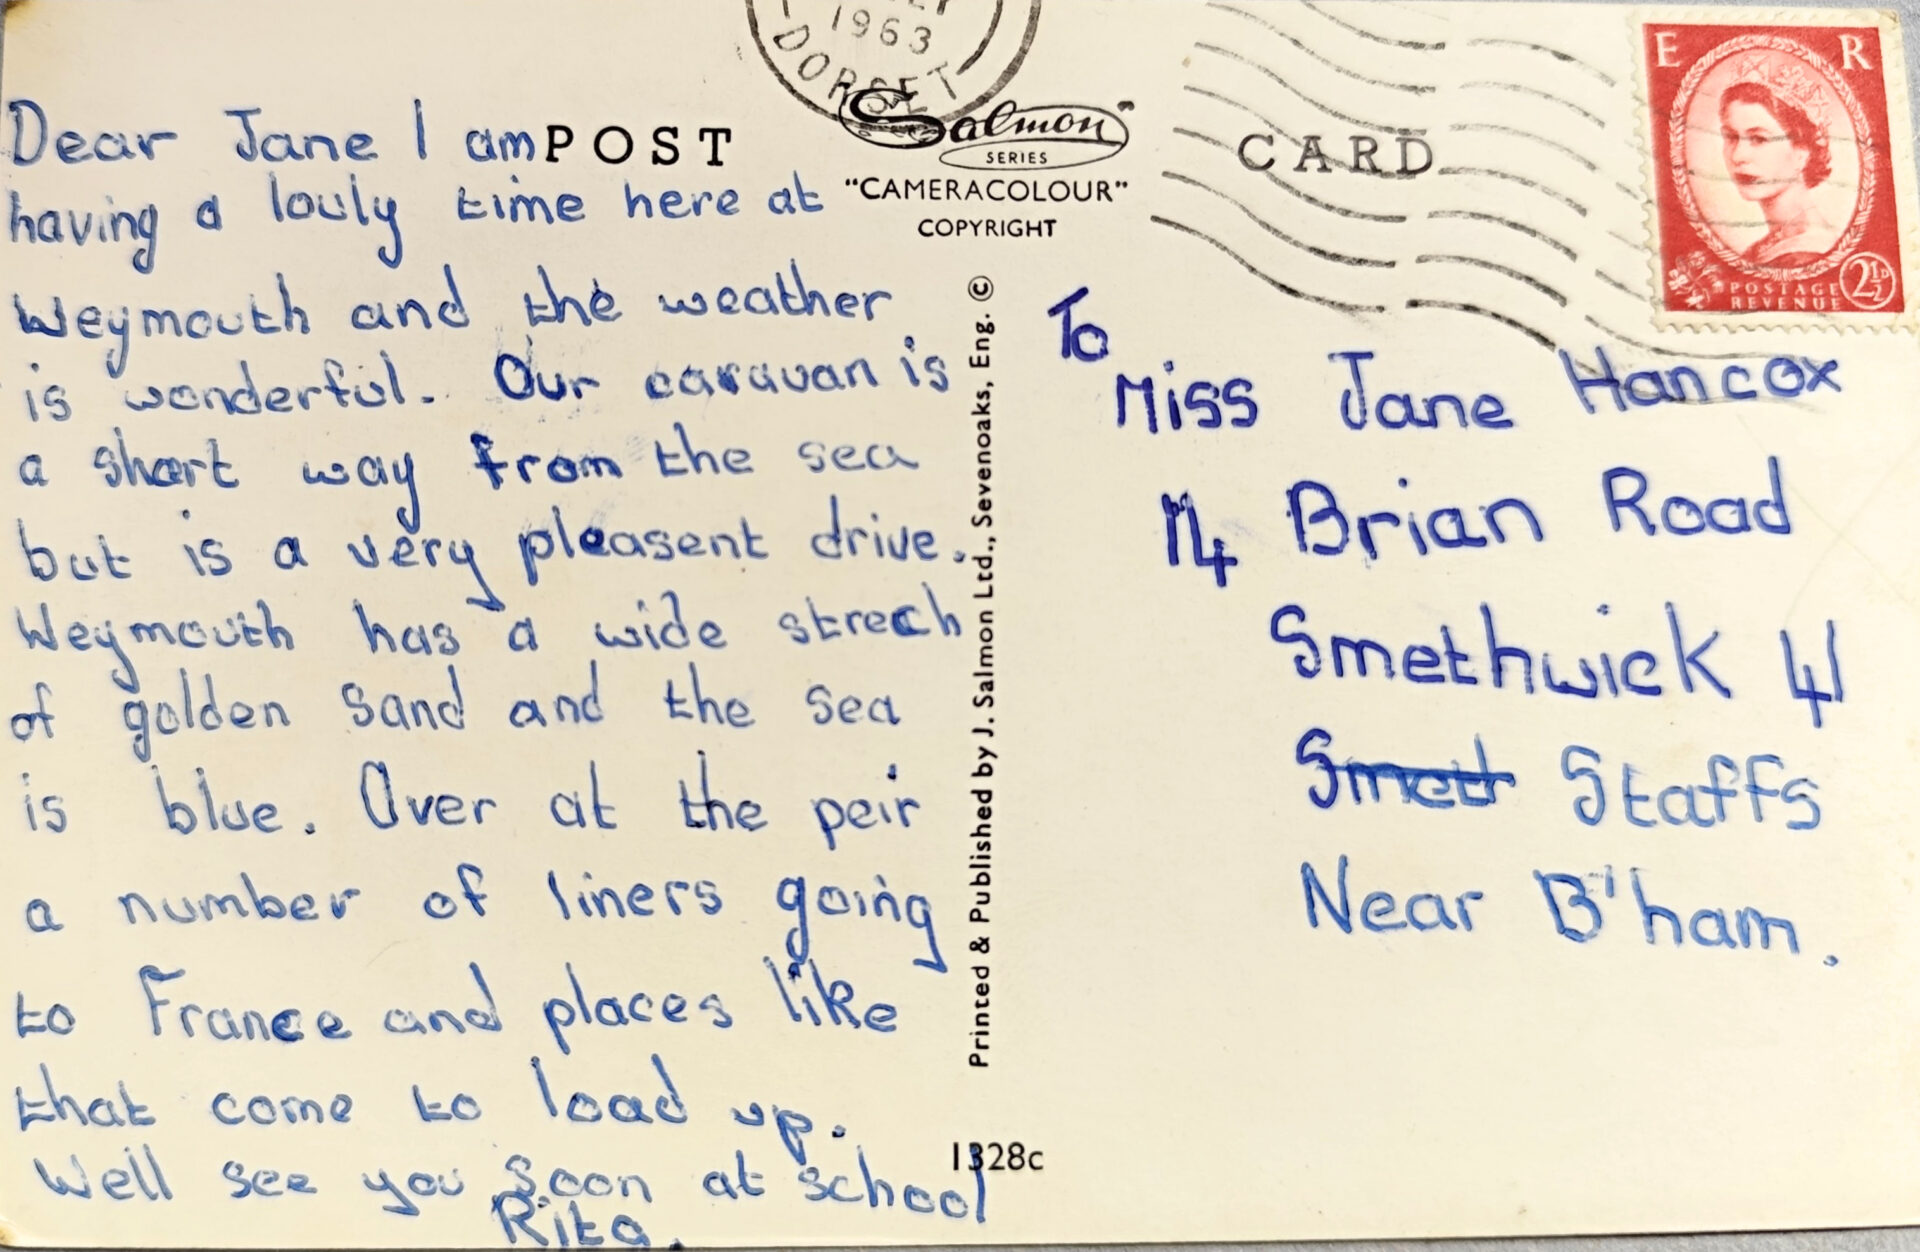 1963
DORSET
E R
POSTAGE
REVENUE
2½D
POST CARD
Salmon
SERIES
"CAMERACOLOUR"
COPYRIGHT
Dear Jane I am
having a louly time here at
Weymouth and the weather
is wonderful. Our caravan is
a short way from the sea
but is a very pleasent drive.
Weymouth has a wide strech
of golden sand and the sea
is blue. Over at the peir
a number of liners going
to France and places like
that come to load up.
Well see you soon at school
Rita.
Printed & Published by J. Salmon Ltd., Sevenoaks, Eng. ©
1328c
To
Miss Jane Hancox
14 Brian Road
Smethwick 41
Smeth Staffs
Near B'ham.